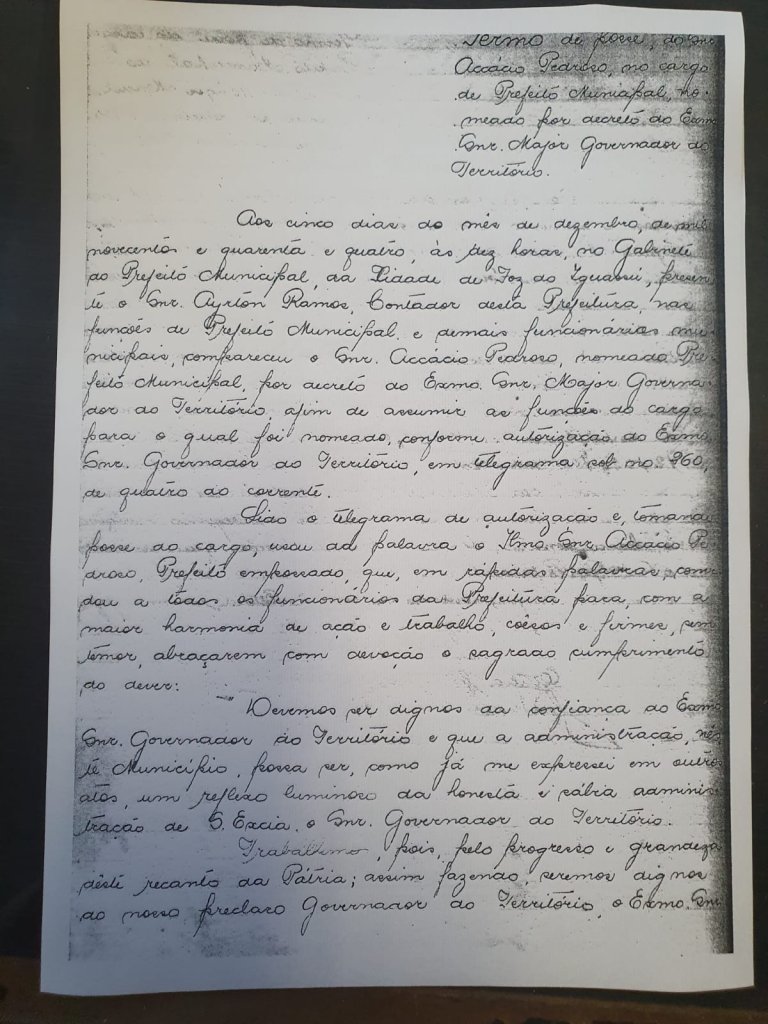 Termo de posse, do Snr.
Accácio Pedroso, no cargo
de Prefeito Municipal, no-
meado por decreto do Exmo.
Snr. Major Governador do
Território.
Aos cinco dias do mês de dezembro, de mil
novecentos e quarenta e quatro, às dez horas, no Gabinete
do Prefeito Municipal, da Cidade de Foz do Iguassú, presen
te o Snr. Ayrton Ramos, Contador desta Prefeitura, nas
funções de Prefeito Municipal e demais funcionários mu
nicipais, compareceu o Snr. Accácio Pedroso, nomeado Pre
feito Municipal, por decreto do Exmo. Snr. Major Governa
dor do Território, afim de assumir as funções do cargo
para o qual foi nomeado, conforme autorização do Exmo.
Snr. Governador do Território, em telegrama sob no. 260,
de quatro do corrente.
Lido o telegrama de autorização e, tomand
posse do cargo, usou da palavra o Ilmo. Snr. Accácio Pe
droso, Prefeito empossado, que, em rápidas palavras, con
dou a todos os funcionários da Prefeitura para, com a
maior harmonia de ação e trabalho, coêsos e firmes, sem
temor, abraçarem com devoção o sagrado cumprimento
do dever:
—" Devemos ser dignos da confiança do Exmo.
Snr. Governador do Território e que a administração, nês
te Município, possa ser, como já me expressei em outros
atos, um reflexo luminoso da honesta e sábia adminis
tração de S. Excia. o Snr. Governador do Território.
Trabalhemos, pois, pelo progresso e grandeza
dêste recanto da Pátria; assim fazendo seremos dignos
do nosso preclaro Governador do Território, o Exmo. Snr.